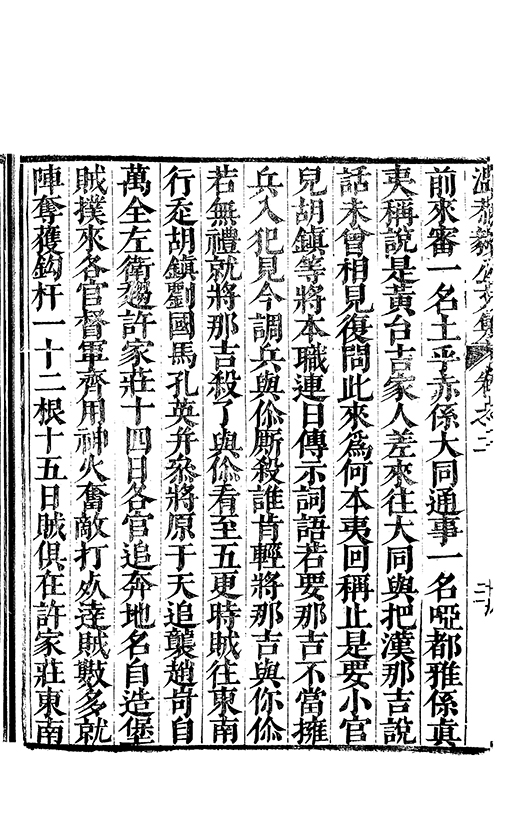 前來審一名土乎赤係大同通事一名啞都雅係真
夷稱說是黃台吉家人差來往大同與把漢那吉說
話未曾相見復問此來爲何本夷回稱止是要小官
兒胡鎮等將本職連日傳示詞語若要那吉不當擁
兵入犯見今調兵與你厮殺誰肯輕將那吉與你你
若無禮就將那吉殺了與你看至五更時賊往東南
行走胡鎮劉國馬孔英并叅將原于天追襲趙岢自
萬全左衛趨許家莊十四日各官追奔地名自造堡
賊撲來各官督軍齊用神火奮敵打死逹賊數多就
陣奪獲鈎杆一十二根十五日賊俱在許家莊東南